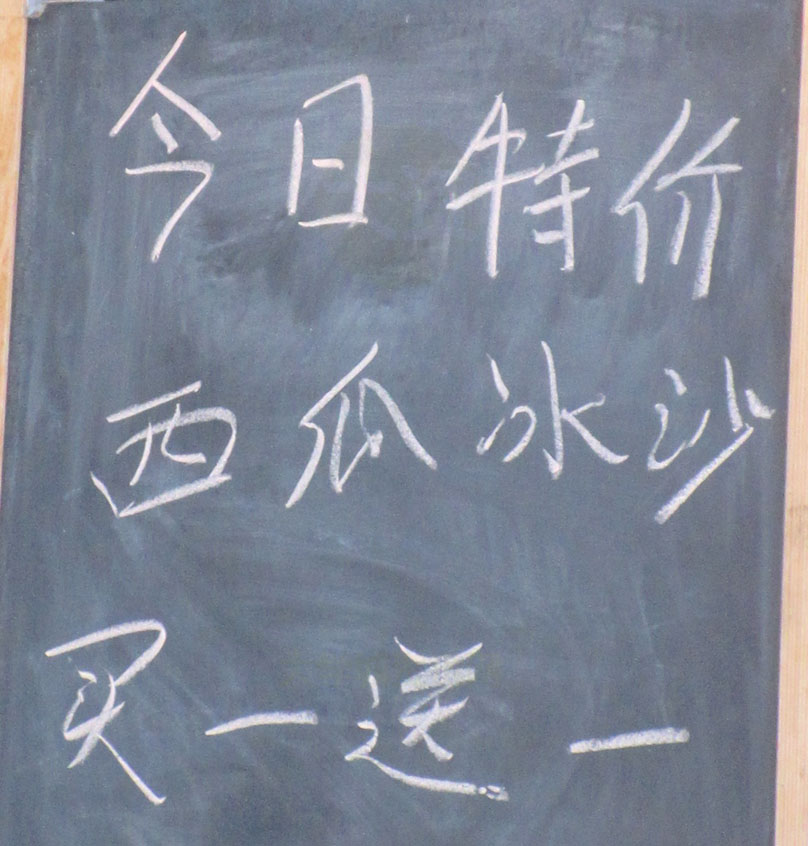 今日特价
西瓜冰沙
买一送一